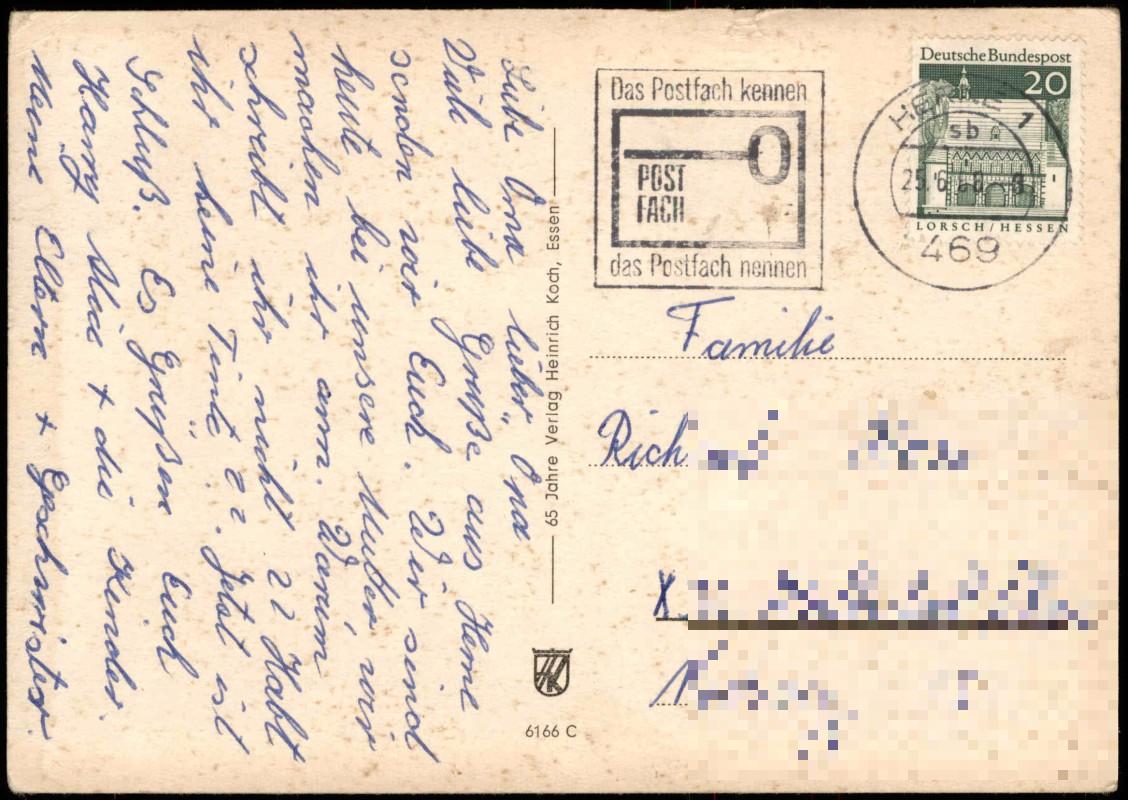 Liebe Oma lieber Opa
Viele liebe Grüße aus Herne
senden wir Euch. Wir sind
heute bei unsere Mutter, wir
machen ihr arm. Warum
schreibt ihr nicht ?? Habt
ihr keine Tinte ??. Jetzt ist
Schluß. Es Grüßen Euch
und die Kinder.
Meine Eltern + Geschwister.
65 Jahre Verlag Heinrich Koch, Essen
6166 C
Das Postfach kennen
POST
FACH
das Postfach nennen
Deutsche Bundespost
20
LORSCH/HESSEN
HERNE 1
sb
25.6
469
Familie
Rich